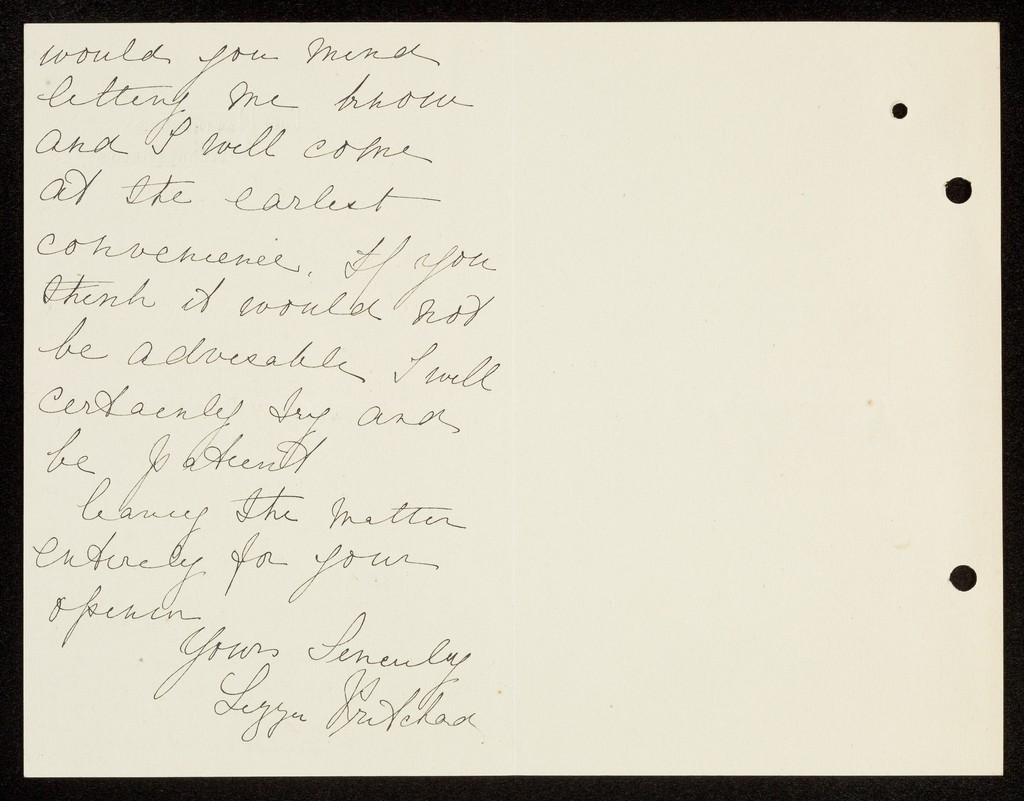 would you mind
letting me know
and I will come
at the earlest
convenience. If you
think it would not
be advisable I will
certainly try and
be patient
leaving the matter
entirely for your
openin
Yours Sincerly
Lizzie Pritchad